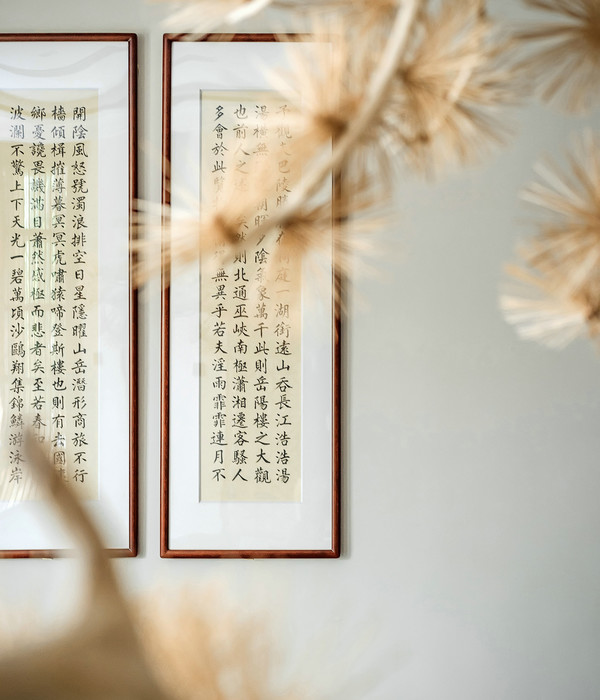 觀巴陵庭一湖銜遠山吞長江浩浩湯
橫無夕陰象萬千此則岳陽樓之大觀
也前人之矣則北通巫峽南極瀟湘遷客騷人
多會於此無異乎若夫淫雨霏霏連月不
開陰風怒號濁浪排空日星隱曜山岳潛形商旅不行
檣傾楫摧薄暮冥冥虎嘯猿啼登斯樓也則有去國
鄉憂讒畏譏滿目蕭然感極而悲者矣至若春和
波瀾不驚上下天光一碧萬頃沙鷗翔集錦鱗游泳岸